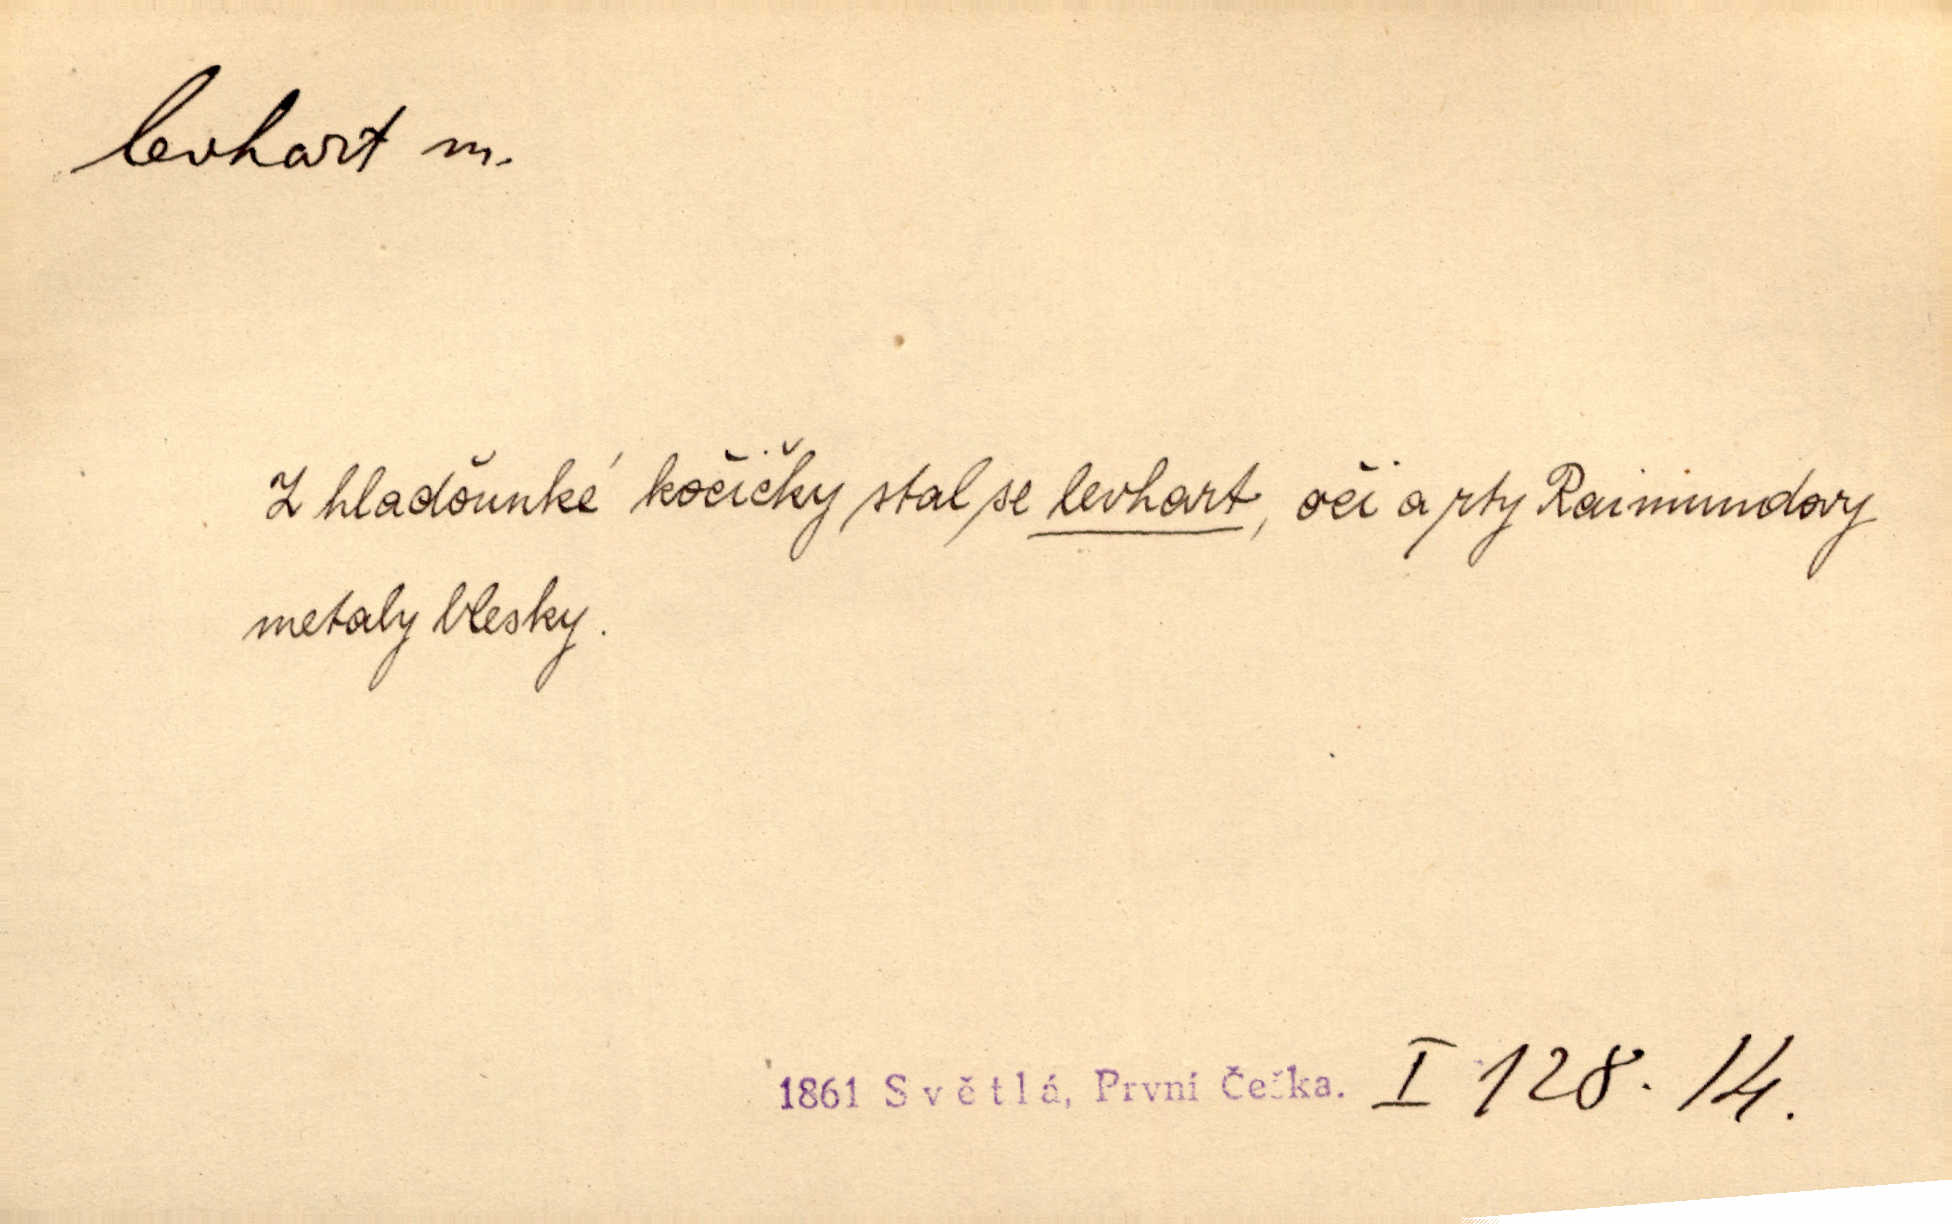 levhart m.
Z hladounké kočičky stal se levhart, oči a rty Raimundovy
metaly blesky.
1861 Světlá, První Češka. I 128. 14.